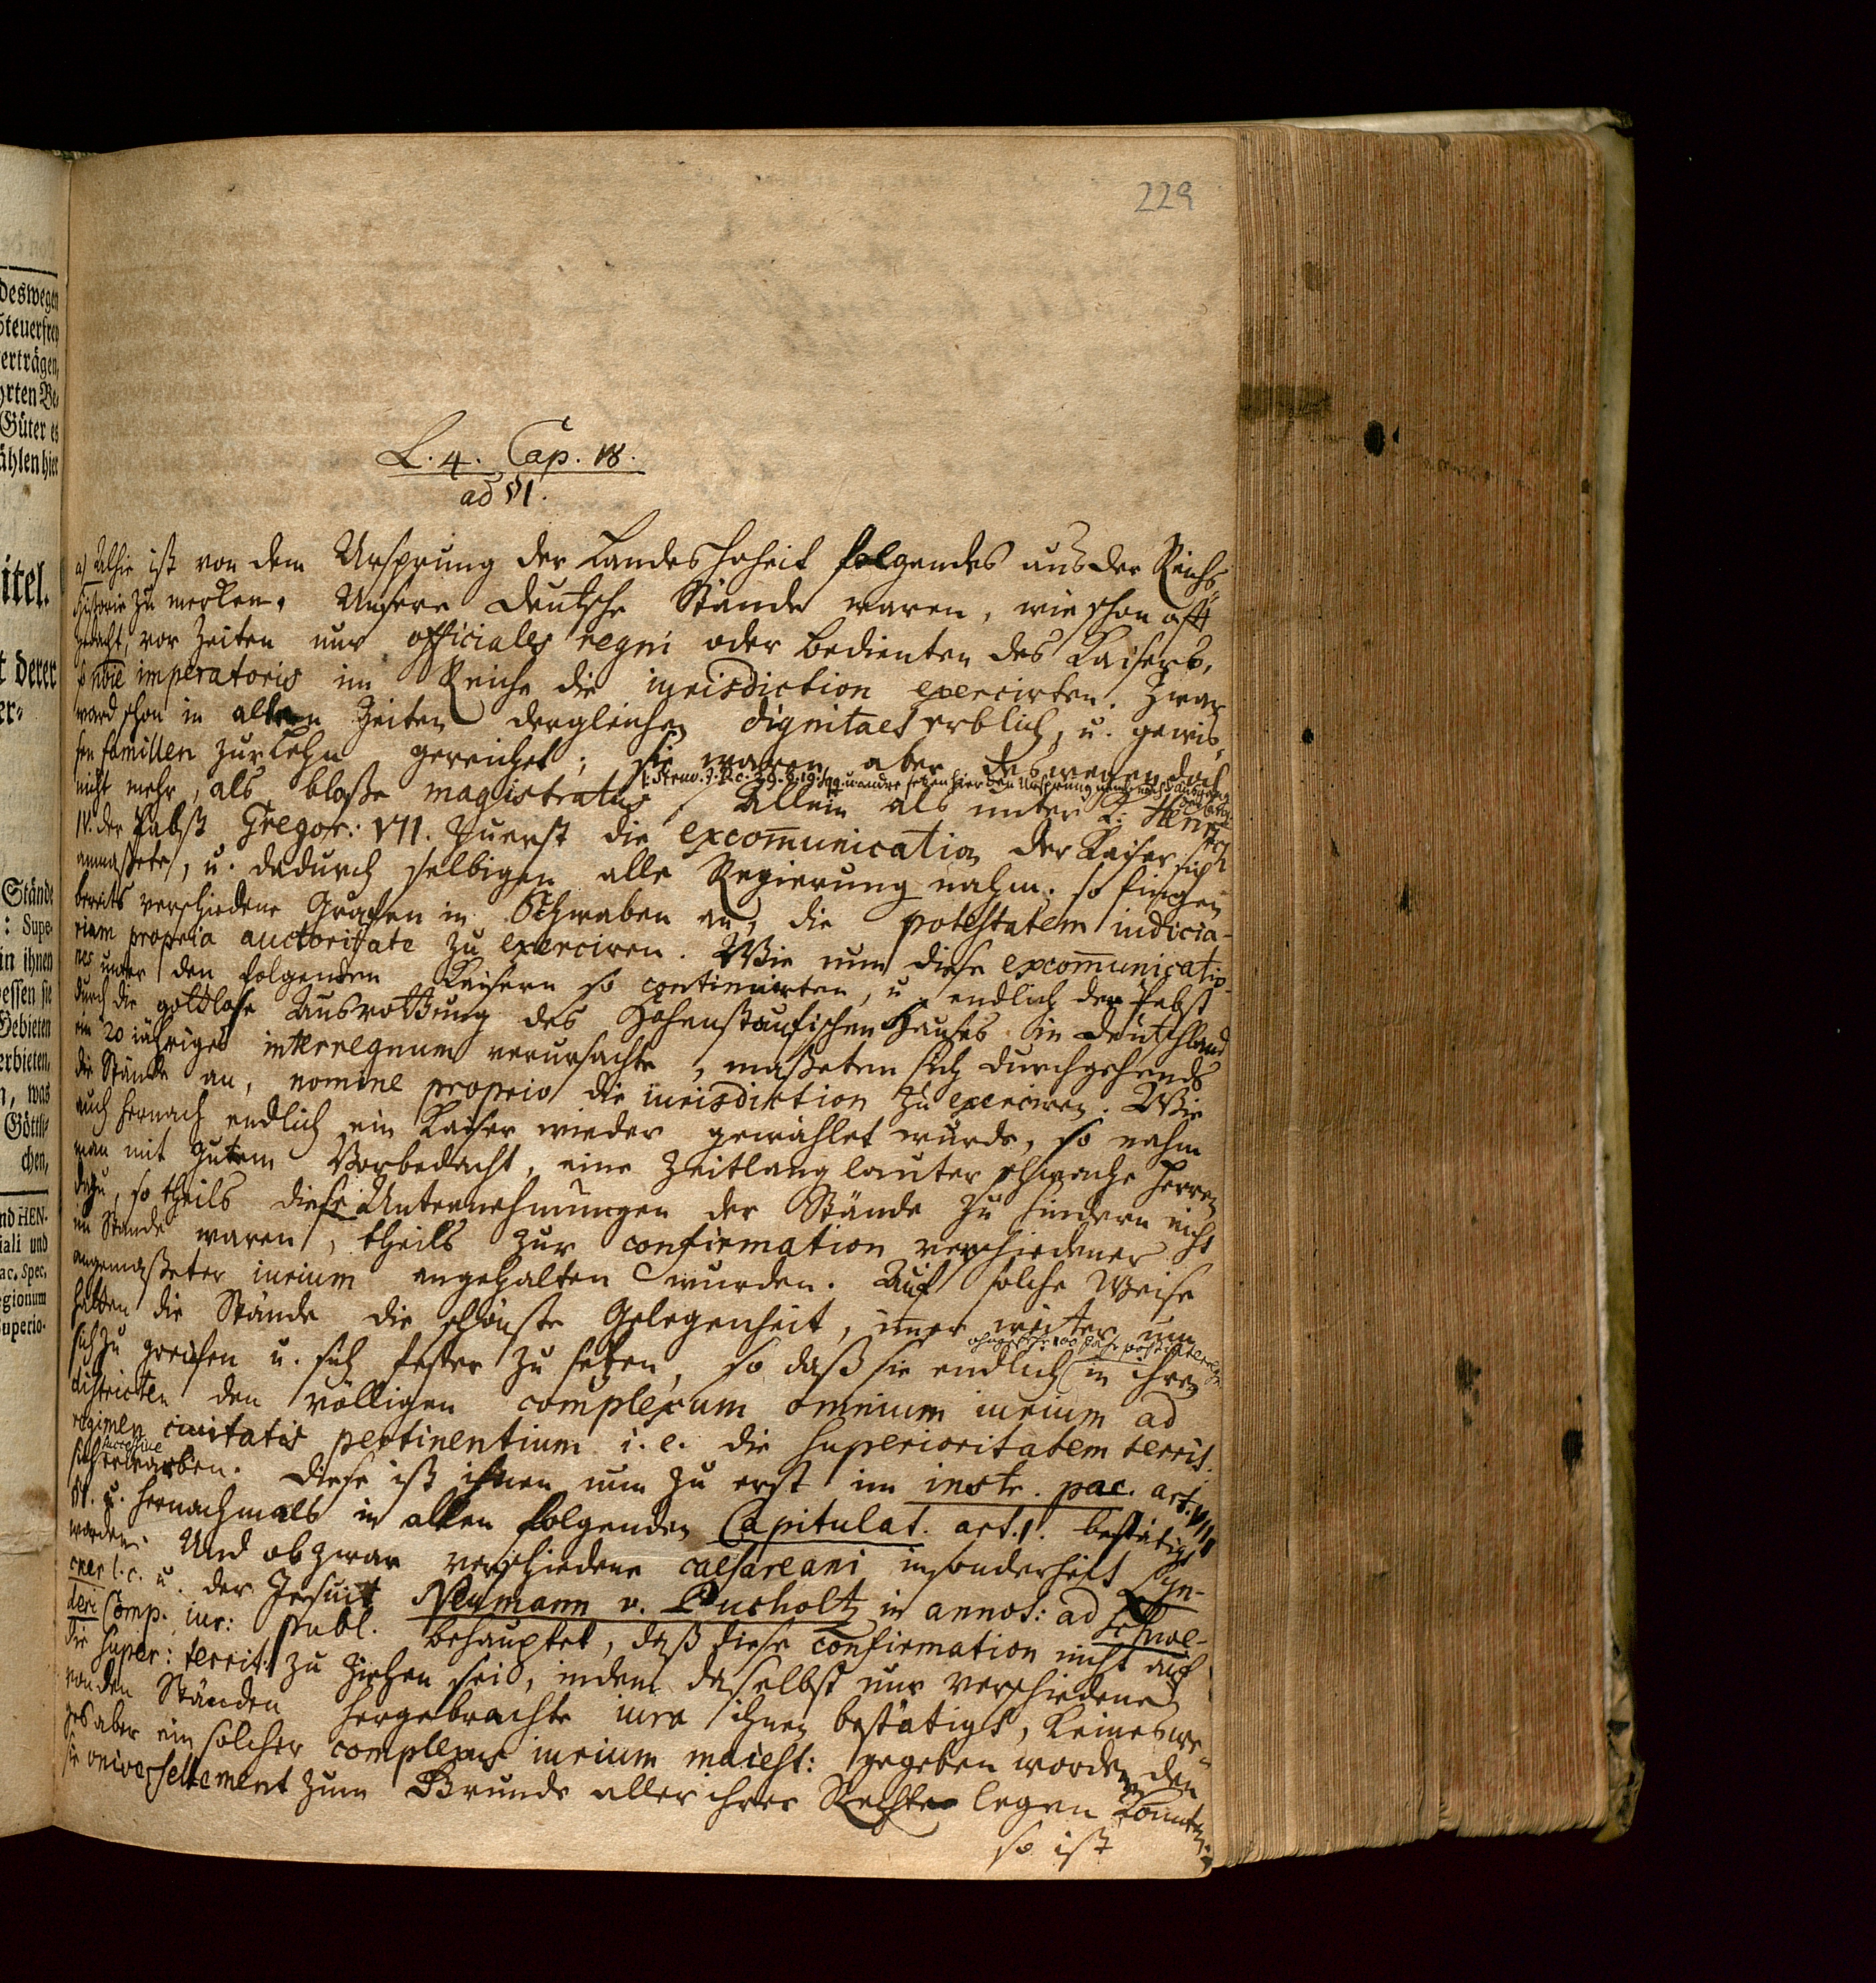 229
L. 4. Cap. 18.
ad §1.
a) Alhie ist von dem Ursprung der Landes Hoheit folgendes aus der Reichs-
historie zu merken. Unsere deutsche Stände waren, wie schon offt
gedacht, vor Zeiten nur officiales regni oder Bedienten des Kaisers,
so noie imperatoris im Reiche die iurisdiction exercirten. Zwar
ward schon in alten Zeiten dergleichen dignitaet erblich, u. gewis-
sen familien zur Lehn gereichet; sie waren aber deswegen doch
s. Struv. J. P. c. 29. §. 19. sqq. u. andre setzen hier den Ursprung
nicht mehr, als bloße magistratus. Allein als unter K. Henr.
IV. der Pabst Gregor: VII. zuerst die excommunication der Kaiser sich
anmaßete, u. dadurch selbigen alle Regierung nahm; so fingen
bereits verschiedene Grafen in Schwaben an, die potestatem iudicia-
riam propria auctoritate zu exerciren. Wie nun diese excommunicatio-
nes unter den folgenden Kaisern so continuirten, u. endlich der Pabst
durch die gottlose Ausrottung des Hohenstaufischen Hauses in Deutschland
ein 20 iähriges interregnum verursachte, maßeten sich durchgehends
die Stände an, nomine proprio die iurisdiction zu exerciren. Wie
auch hernach endlich ein Kaiser wieder gewählet wurde, so nahm
man mit gutem Vorbedacht, eine Zeitlang lauter schwache Herren
dazu, so theils diese Unternehmungen der Stände zu hindern nicht
im Stande waren, theils zur confirmation verschiedener
angemaßeter iurium angehalten wurden. Auf solche Weise
hatten die Stände die schönste Gelegenheit, imer weiter um
sich zu greifen u. sich fester zu setzen, so daß sie endlich in ihren
ohngefehr 100 Jahr post interregn.
districten den völligen complexum omnium iurium ad
regimen civitatis pertinentium i. e. die superioritatem territ.
successive
sich erwarben. Diese ist ihnen nun zu erst im instr. pac. art. VIII
§1. u. hernachmals in allen folgenden Capitulat. art. 1. bestätigt
worden. Und ob zwar verschiedene caesareani insonderheit Lyn-
cker l. c. u. der Jesuit Neumann v. Pucholtz in annot: ad Schwe-
deri Comp. iur: publ. behauptet, daß diese confirmation nicht auf
die super: territ: zu ziehen sei, indem daselbst nur verschiedene
von den Ständen hergebrachte iura ihnen bestätigt, keineswe-
ges aber ein solcher complexus iurium maiest: gegeben worden, den
sie universellement zum Grunde aller ihrer Rechte legen könnten;
so ist
deswegen
Steuerfrey
erträgen,
hrten Be-
Güter es
ählen hier
itel.
t derer
er-
Stände
: Supe-
in ihnen
essen sie
Gebieten
erbieten,
n, was
Göttli-
chen,
nd HEN-
iali und
ac. Spec.
egionum
Superio-